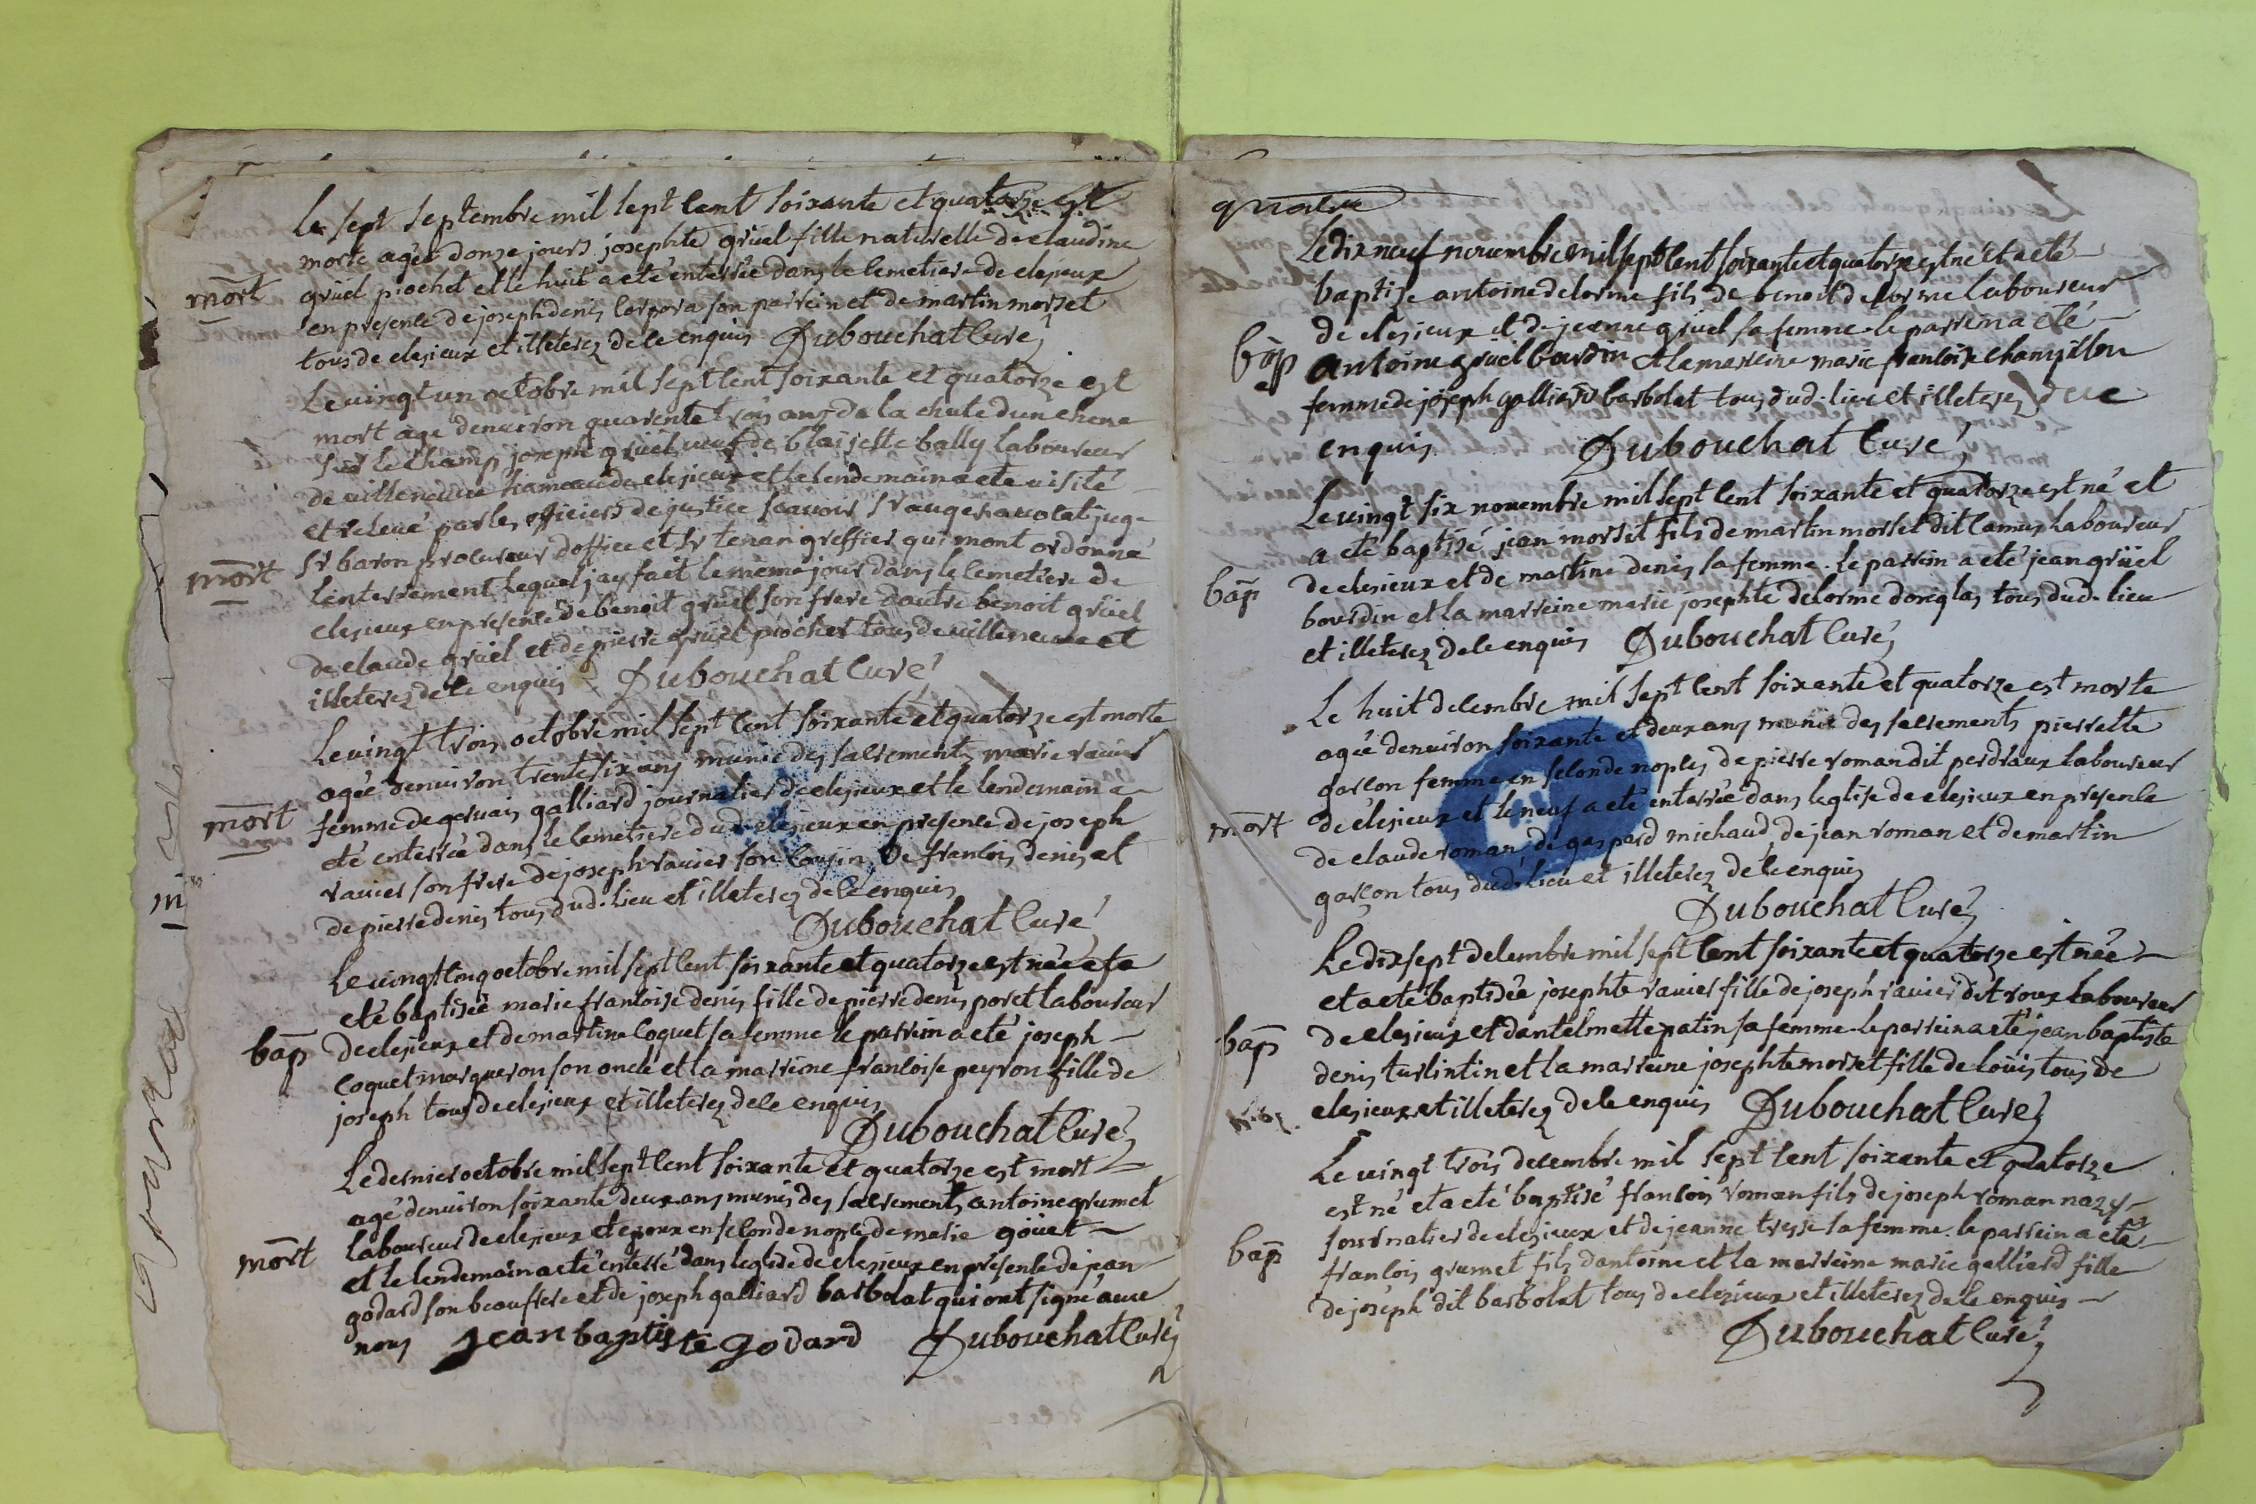 le sept septembre mil sept cent soixante et quatorze est
mort
morte agée donze jours josephte grüel fille naturelle de claudine
grüel piochet et le huit a eté enterrée dans le cemetiere de clesieux
en presence de joseph denis corpora son parrein et de martin morset
tous de clesieux et illeterez de ce enquis Dubouchat curé
Le vingt un octobre mil sept cent soixante et quatorze est
mort agé denviron quarente trois ans de la chute dun chene
sur le champ joseph grüel veuf de blaisette bally laboureur
de villeneuve hameau de clesieux et le lendemain a eté visité
et relevé par les officiers de justice scavoir sr auger avocat juge
mort
sr baron procureur doffice et sr tenan greffier qui mont ordonné
lenterrement lequel jay fait le meme jour dans le cemetiere de
clesieux en presence de benoit grüel son frere dautre benoit grüel
de claude grüel et de pierre grüel piochet tous de villeneuve et
illeterez de ce enquis Dubouchat curé
Le vingt trois octobre mil sept cent soixante et quatorze est morte
agée denviron trente six ans munie des sacrements marie ravier
mort
femme de gervais galliard journalier de clesieux et le lendemain a
eté enterrée dans le cemetiere dud. clesieux en presence de joseph
ravier son frere de joseph ravier son cousin, de francois denis et
de pierre denis tous dud. lieu et illeterez de ce enquis
Dubouchat curé
Le vingt cinq octobre mil sept cent soixante et quatorze est née et a
eté baptisée marie francoise denis fille de pierre denis poret laboureur
bap
de clesieux et de martine coquet sa femme le parrein a eté joseph
coquet marqueron son oncle et la marreine francoise peyron fille de
joseph tous de clesieux et illeterez de ce enquis
Dubouchat curé
Le dernier octobre mil sept cent soixante et quatorze est mort
agé denviron soixante deux ans munis des sacrements antoine grumet
laboureur de clesieux et epoux en seconde nopce de marie goüet
mort
et le lendemain a eté enterré dans leglise de clesieux en presence de jean
godard son beaufrere et de joseph galliard barbolat qui ont signé avec
nous jean baptiste godard Dubouchat curé
quatre
Le dix neuf novembre mil sept cent soixante et quatorze est né et a eté
baptise antoine delorme fils de benoit delorme laboureur
de clesieux et de jeanne grüel sa femme. le parrein a eté
bap
antoine grüel bourdin et la marreine marie francoise champillon
femme de joseph galliard barbolat tous dud. lieu et illeterez de ce
enquis Dubouchat curé
Le vingt six novembre mil sept cent soixante et quatorze est né et
a eté baptisé jean morset fils de martin morset dit camus laboureur
bap
de clesieux et de martine denis sa femme. le parrein a eté jean grüel
bourdin et la marreine marie josephte delorme doriglas tous dud. lieu
et illeterez de ce enquis Dubouchat curé
Le huit decembre mil sept cent soixante et quatorze est morte
agée denviron soixante et deux ans munie des sacrements pierrette
garcon femme en seconde nopces de pierre roman dit perdraux laboureur
mort
de clesieux et le neuf a eté enterrée dans leglise de clesieux en presence
de claude roman de gaspard michaud, de jean roman et de martin
garcon tous dud. lieu et illeterez de ce enquis
Dubouchat curé
Le dix sept decembre mil sept cent soixante et quatorze est née
et a eté baptisée josephte ravier fille de joseph ravier dit roux laboureur
bap
de clesieux et dantelmette patin sa femme. le parrein a eté jean baptiste
denis turlintin et la marreine josephte morset fille de loüis tous de
clesieux et illeterez de ce enquis Dubouchat curé
Le vingt trois decembre mil sept cent soixante et quatorze
est né et a eté baptisé francois roman fils de joseph roman nazy
bap
journalier de clesieux et de jeanne tresse sa femme. le parrein a eté
francois grumet fils dantoine et la marreine marie galliard fille
de joseph dit barbolat tous de clesieux et illeterez de ce enquis
Dubouchat curé